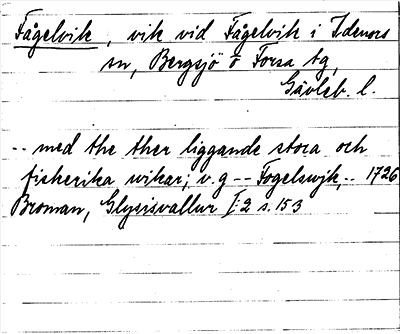 Fågelvik, vik vid Fågelvik i Idenors
sn, Bergsjö o Forsa tg,
Gävleb. l.
-- med the ther liggande stora och
fisherika wikar; v.g -- Fogelswjk, -- 1726
Broman, Glysisvallur I:2 s. 153